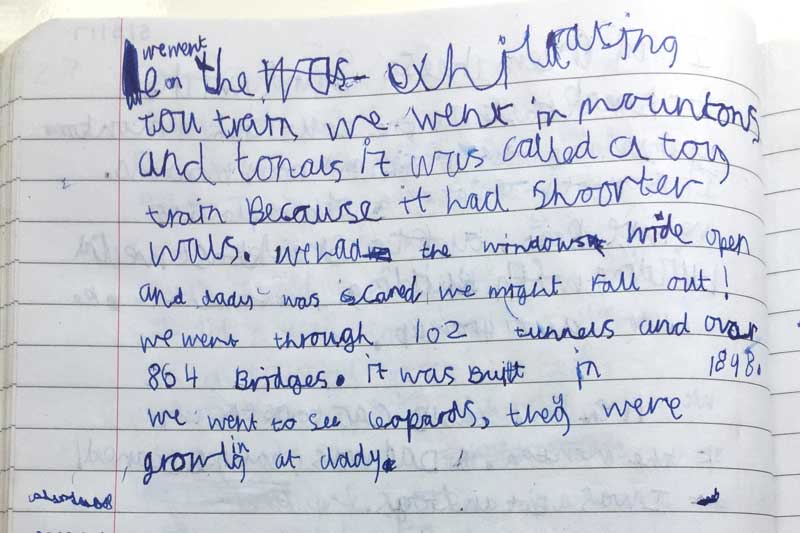 we went
on the was exhilarating
tou train, we went in mountons
and tonals it was called a toy
train Because it had shoorter
wals. we had the windows wide open
and dady was scared we might fall out!
we went through 102 tunnels and over
864 Bridges. it was built in 1898.
we went to see leopards, they were
growling at dady.